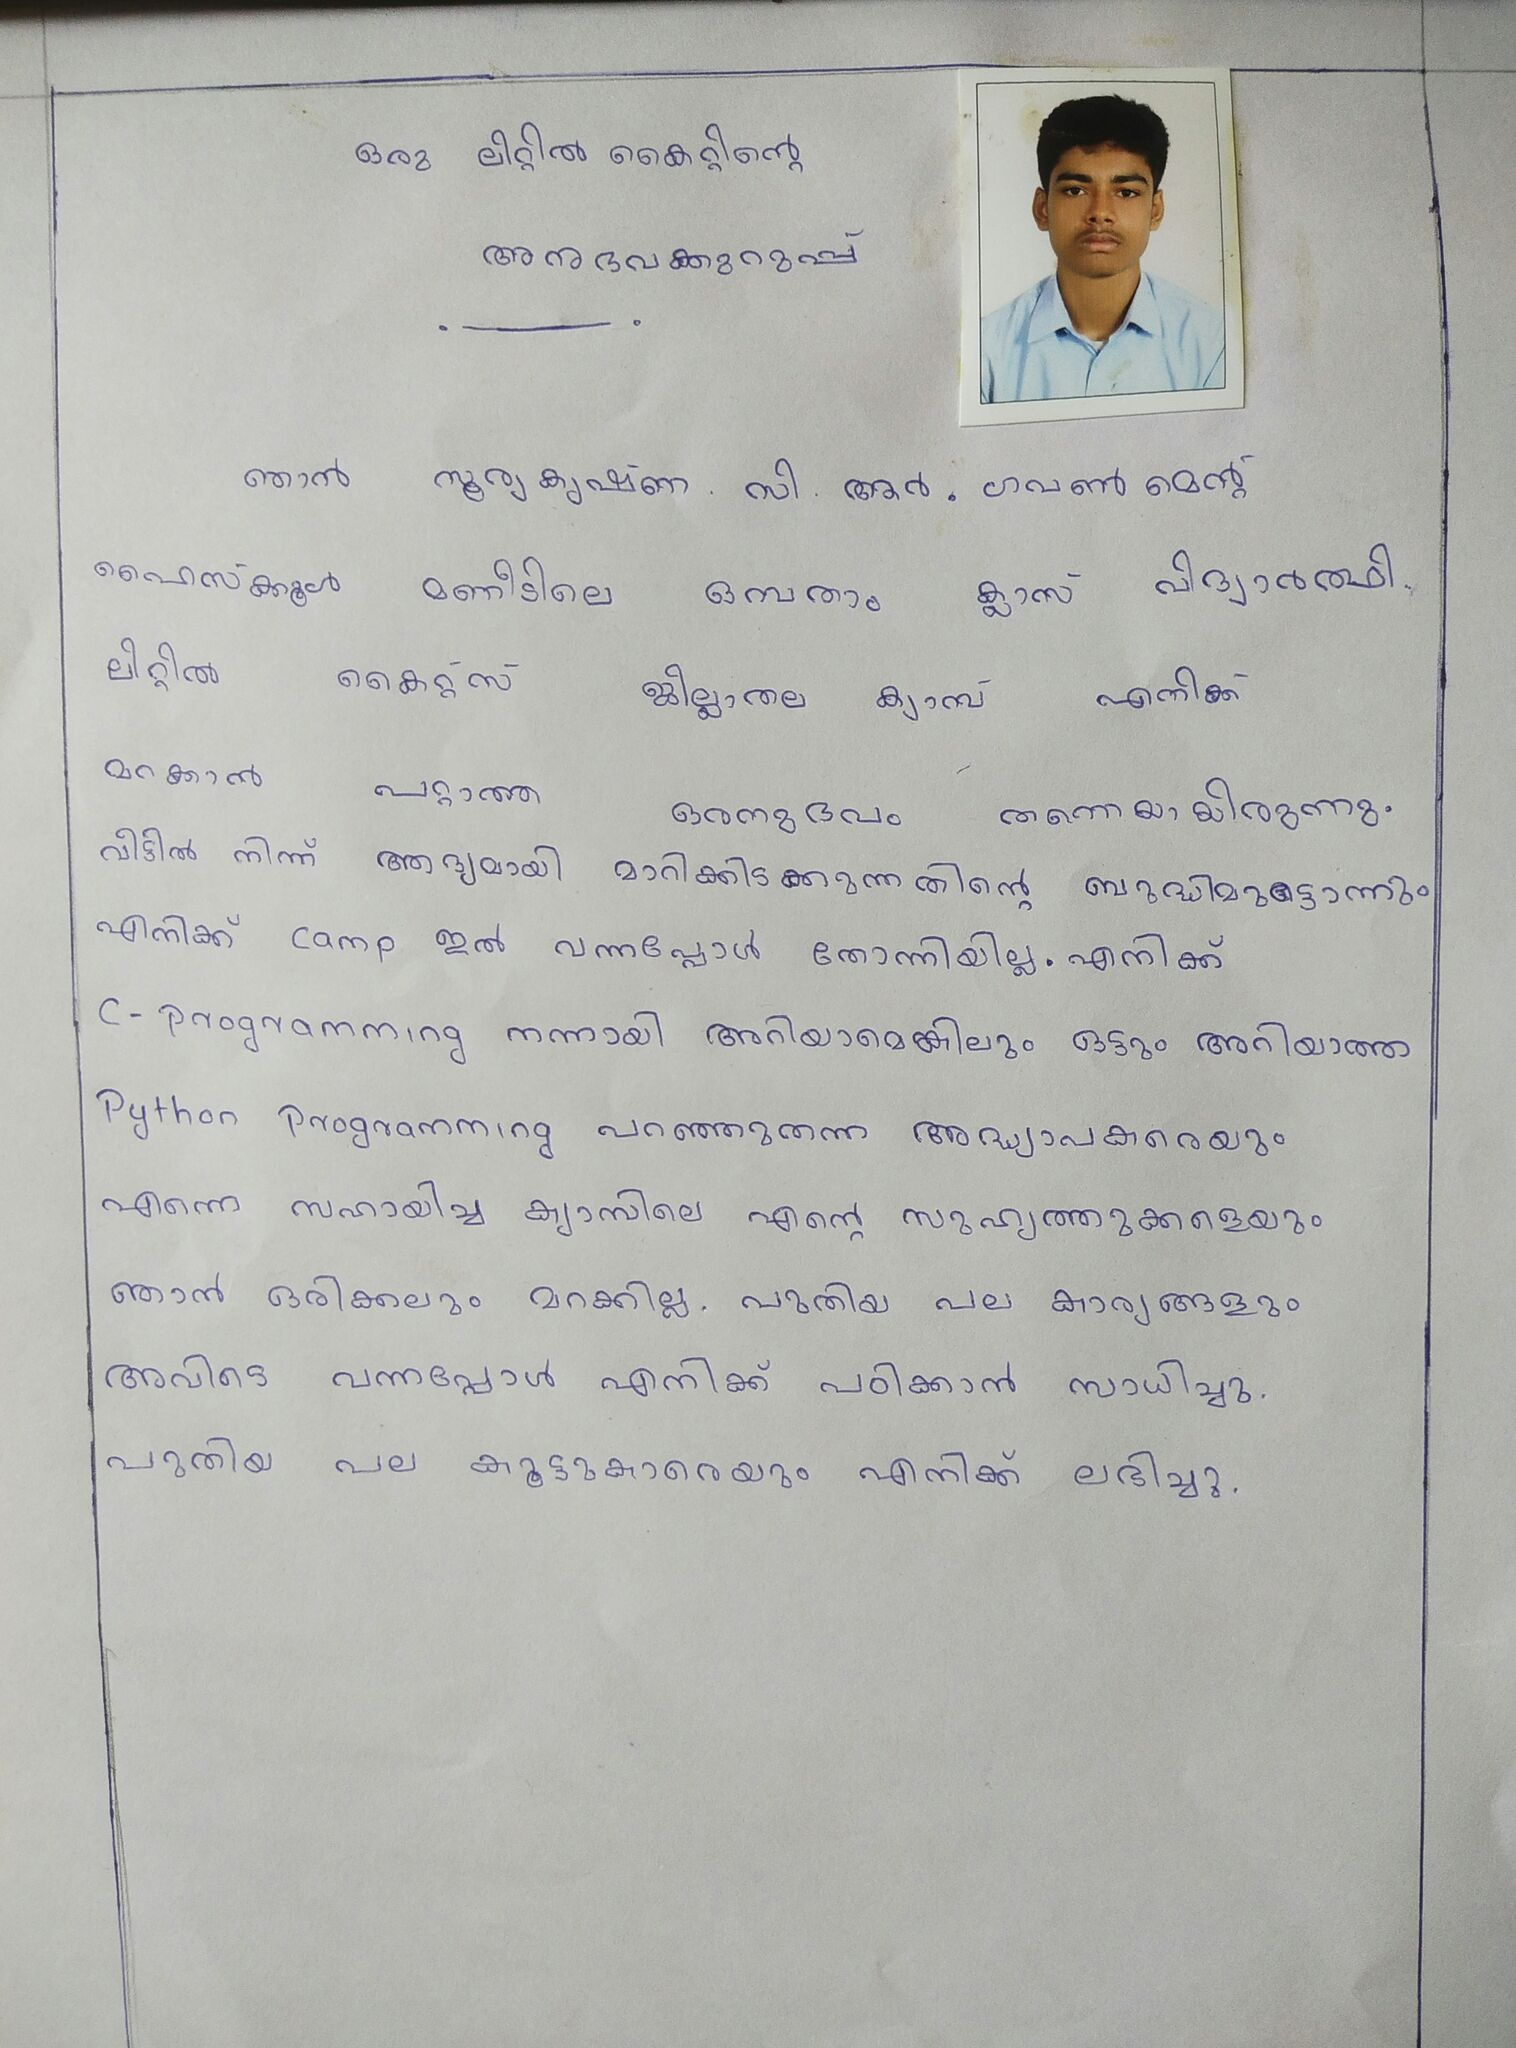 ഒരു ലിറ്റിൽ കൈറ്റിന്റെ
അനുഭവക്കുറുപ്പ്
ഞാൻ സൂര്യകൃഷ്ണ. സി. ആർ. ഗവൺമെന്റ്
ഹൈസ്ക്കൂൾ മണീടിലെ ഒമ്പതാം ക്ലാസ് വിദ്യാർത്ഥി.
ലിറ്റിൽ കൈറ്റ്സ് ജില്ലാതല ക്യാമ്പ് എനിക്ക്
മറക്കാൻ പറ്റാത്ത ഒരനുഭവം തന്നെയായിരുന്നു.
വീട്ടിൽ നിന്ന് ആദ്യമായി മാറിക്കിടക്കുന്നതിന്റെ ബുദ്ധിമുട്ടൊന്നും
എനിക്ക് camp ഇൽ വന്നപ്പോൾ തോന്നിയില്ല. എനിക്ക്
C-Programming നന്നായി അറിയാമെങ്കിലും ഒട്ടും അറിയാത്ത
Python Programming പറഞ്ഞുതന്ന അദ്ധ്യാപകരെയും
എന്നെ സഹായിച്ച ക്യാമ്പിലെ എന്റെ സുഹൃത്തുക്കളെയും
ഞാൻ ഒരിക്കലും മറക്കില്ല. പുതിയ പല കാര്യങ്ങളും
അവിടെ വന്നപ്പോൾ എനിക്ക് പഠിക്കാൻ സാധിച്ചു.
പുതിയ പല കൂട്ടുകാരെയും എനിക്ക് ലഭിച്ചു.